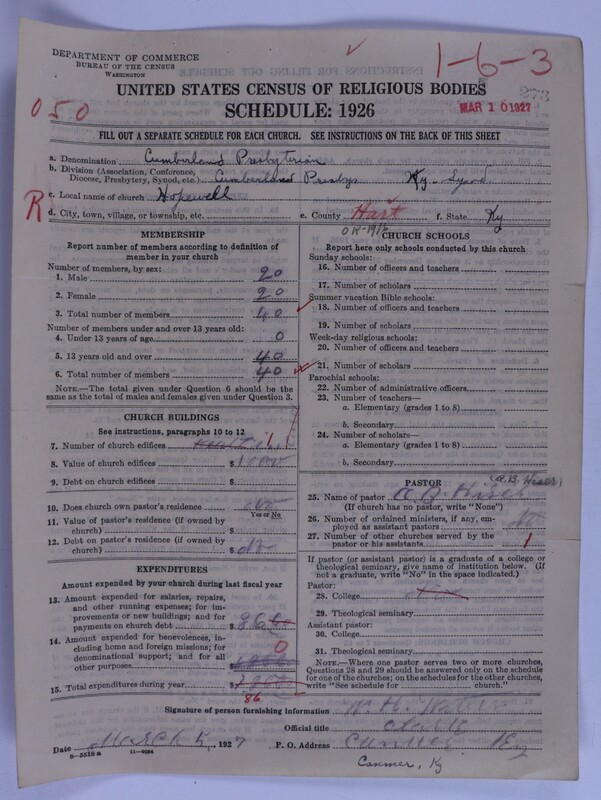 DEPARTMENT OF COMMERCE
BUREAU OF THE CENSUS
WASHINGTON
1-6-3
273
UNITED STATES CENSUS OF RELIGIOUS BODIES
MAR 16 1927
050
SCHEDULE: 1926
FILL OUT A SEPARATE SCHEDULE FOR EACH CHURCH. SEE INSTRUCTIONS ON THE BACK OF THIS SHEET
a. Denomination Cumberland Presbyterian
b. Division (Association, Conference,
Diocese, Presbytery, Synod, etc.) Cumberland Presby Ky. Synod
c. Local name of church Hopewell
R
d. City, town, village, or township, etc. e. County Hart f. State Ky
MEMBERSHIP
Report number of members according to definition of
member in your church
Number of members, by sex:
1. Male 20
2. Female 20
3. Total number of members 40
Number of members under and over 13 years old:
4. Under 13 years of age 0
5. 13 years old and over 40
6. Total number of members 40
NOTE.—The total given under Question 6 should be
same as the total of males and females given under Question 3.
CHURCH BUILDINGS
See instructions, paragraphs 10 to 12
7. Number of church edifices 1
8. Value of church edifices $1000
9. Debt on church edifices $
10. Does church own pastor's residence No
Yes or No
11. Value of pastor's residence (if owned by
church) $
12. Debt on pastor's residence (if owned by
church) $
EXPENDITURES
Amount expended by your church during last fiscal year
13. Amount expended for salaries, repairs,
and other running expenses; for im-
provements or new buildings; and for
payments on church debt $86
14. Amount expended for benevolences, in-
cluding home and foreign missions; for
denominational support; and for all
other purposes 0
15. Total expenditures during year $
86
CHURCH SCHOOLS
Report here only schools conducted by this church
Sunday schools:
16. Number of officers and teachers
17. Number of scholars
Summer vacation Bible schools:
18. Number of officers and teachers
19. Number of scholars
Week-day religious schools:
20. Number of officers and teachers
21. Number of scholars
Parochial schools:
22. Number of administrative officers
23. Number of teachers—
a. Elementary (grades 1 to 8)
b. Secondary
24. Number of scholars—
a. Elementary (grades 1 to 8)
b. Secondary
PASTOR
25. Name of pastor
(If church has no pastor, write "None")
26. Number of ordained ministers, if any, em-
ployed as assistant pastors No
27. Number of other churches served by the
pastor or his assistants 1
If pastor (or assistant pastor) is a graduate of a college or
theological seminary, give name of institution below. (If
not a graduate, write "No" in the space indicated.)
Pastor:
28. College
29. Theological seminary
Assistant pastor:
30. College
31. Theological seminary
NOTE.—Where one pastor serves two or more churches,
Questions 28 and 29 should be answered only on the schedule
for one of the churches; on the schedules for the other churches,
write "See schedule for church."
Signature of person furnishing information W. H.
Official title Clerk
Date March 5, 1927 P. O. Address Canmer Ky
8-5518 a 11-9024
Canmer, Ky